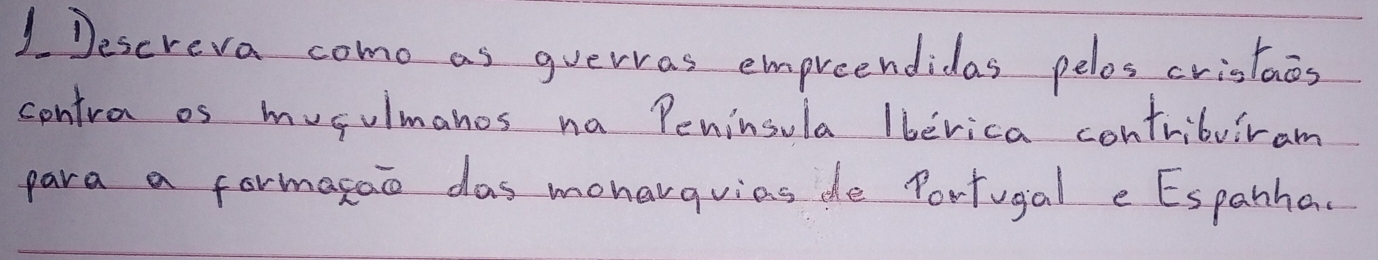 1. Descreva como as guerras empreendidas pelos cristãos
contra os muçulmanos na Península Ibérica contribuíram
para a formação das monarquias de Portugal e Espanha.